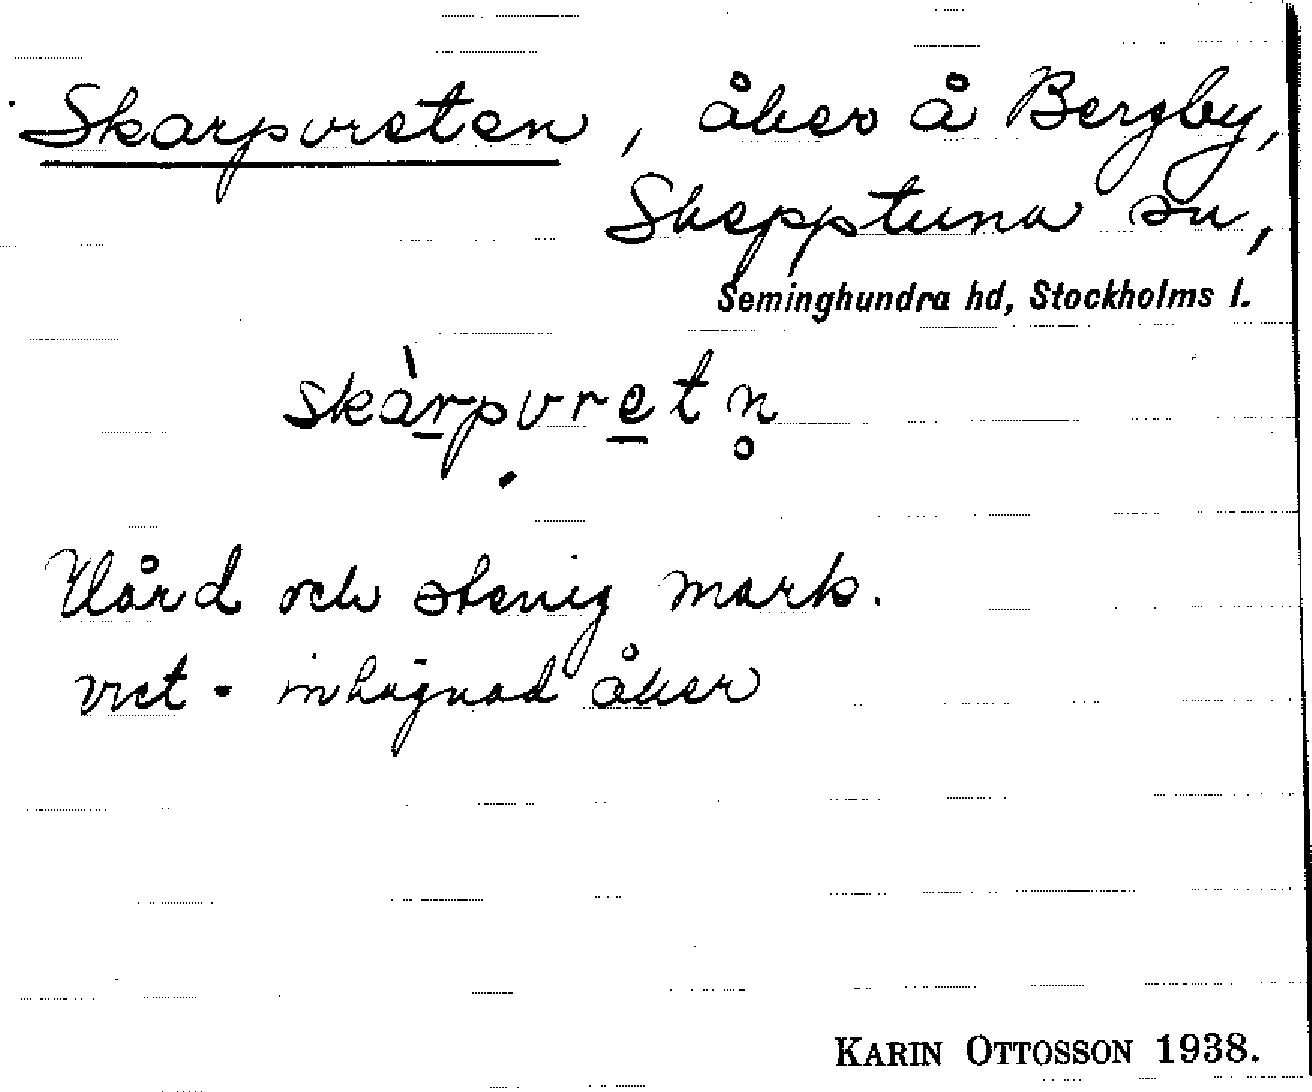 Skarpvreten, åker å Bergby,
Skepptuna sn,
Seminghundra hd, Stockholms l.
skàrpvretn̥
Hård och stenig mark.
vret - inhägnad åker
KARIN OTTOSSON 1938.